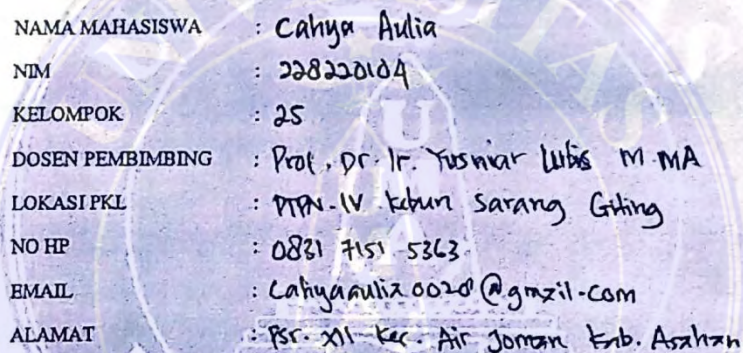 NAMA MAHASISWA : Cahya Aulia
NIM : 228220104
KELOMPOK : 25
DOSEN PEMBIMBING : Prof. Dr. Ir. Yusniar Lubis M.MA
LOKASI PKL : PTPN-IV Kebun Sarang Giting
NO HP : 0831 7151 5363
EMAIL : Cahyaaulia0020@gmail.com
ALAMAT : Psr. XII Kec. Air Joman Kab. Asahan